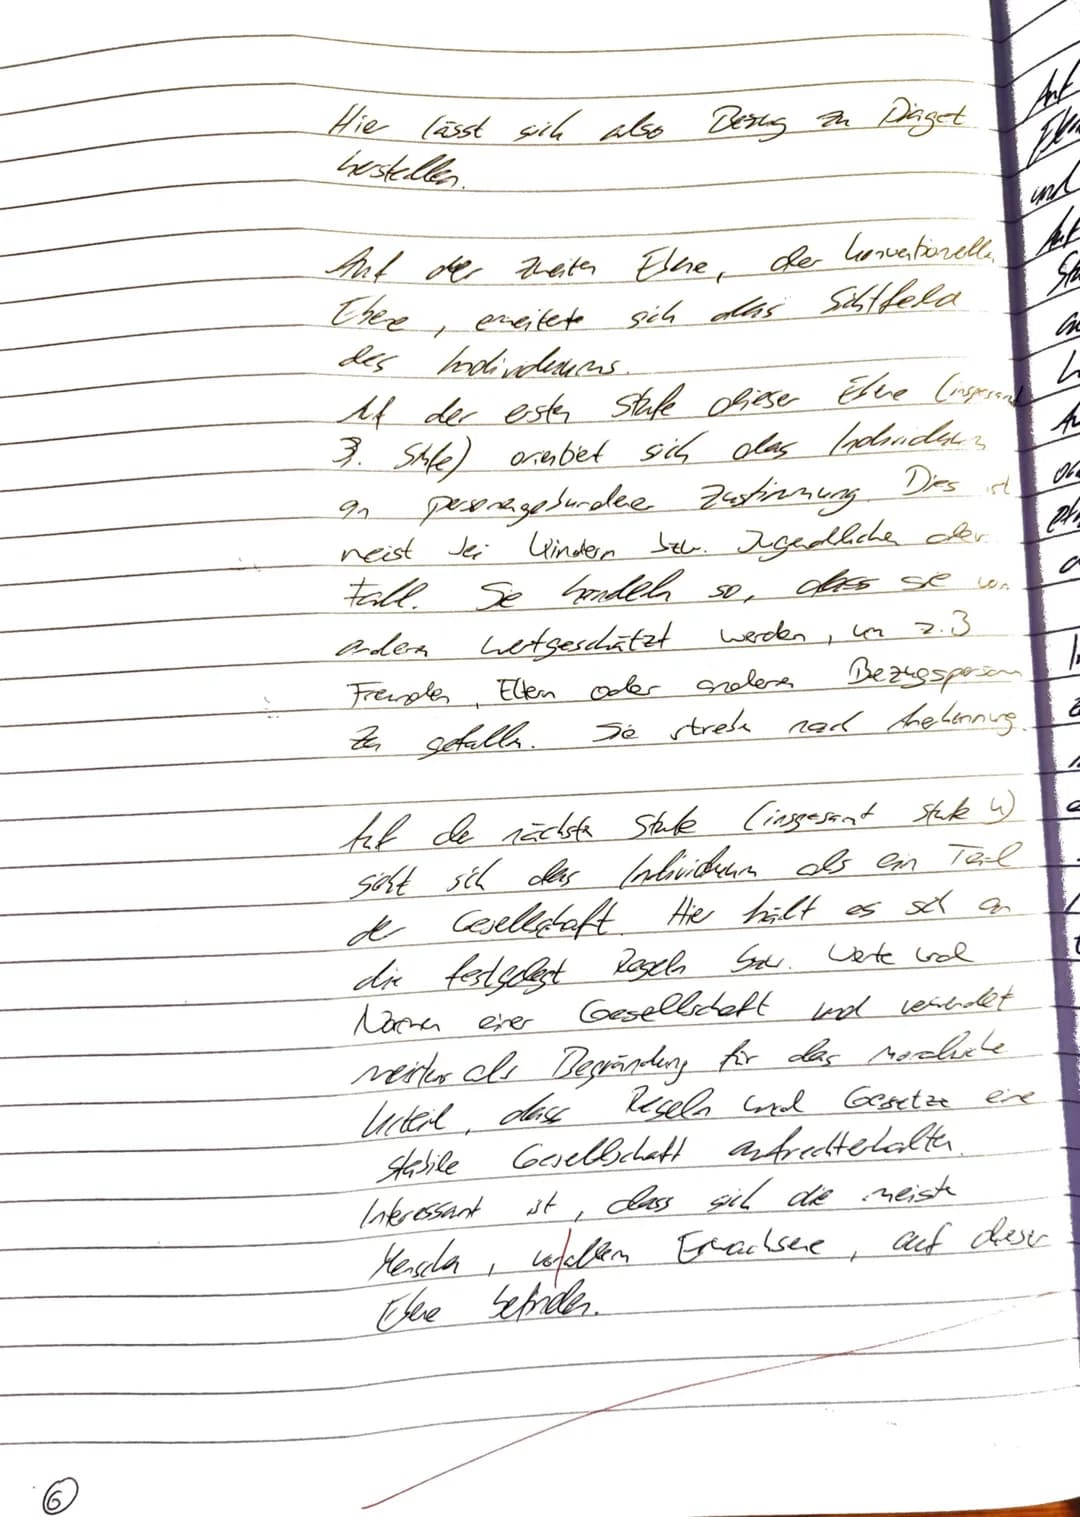 Hier lässt sich also Bezug zu Piaget
herstellen.
Auf der zweiten Ebene, der konventionellen
Ebene, erweitete sich das Sichtfeld
des Individuums.
Auf der ersten Stufe dieser Ebene (insgesamt
3. Stufe) orientiet sich das Individuum
an personengebundene Zustimmung. Dies ist
meist bei Kindern bzw. Jugendlichen der
Fall. Sie handeln so, dass sie von
andern wertgeschätzt werden, um z.B
Freunden, Eltern oder anderen Bezugspersonen
zu gefallen. Sie streben nach Anerkennung.
Auf der nächsten Stufe (insgesamt Stufe 4)
sieht sich das Individuum als ein Teil
der Gesellschaft. Hier hält es sich an
die festgelegt Regeln bzw. Werte und
Normen einer Gesellschaft und verwendet
meistens als Begründung für das moralische
Urteil, dass Regeln und Gesetze eine
stabile Gesellschaft aufrechterhalten.
Interessant ist, dass sich die meisten
Menschen, vorallem Erwachsene, auf dieser
Ebene befinden.
6